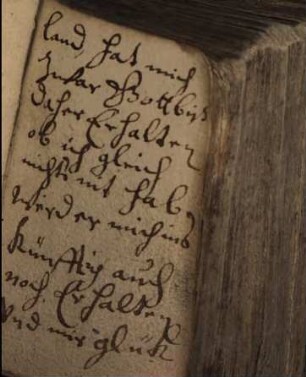 land hat mich
Gott bis
daher Erhalten
ob ich gleich
nichts mit hab,
Wird er mich ins
Künfftig auch
noch Erhalten
Vnd mir glük